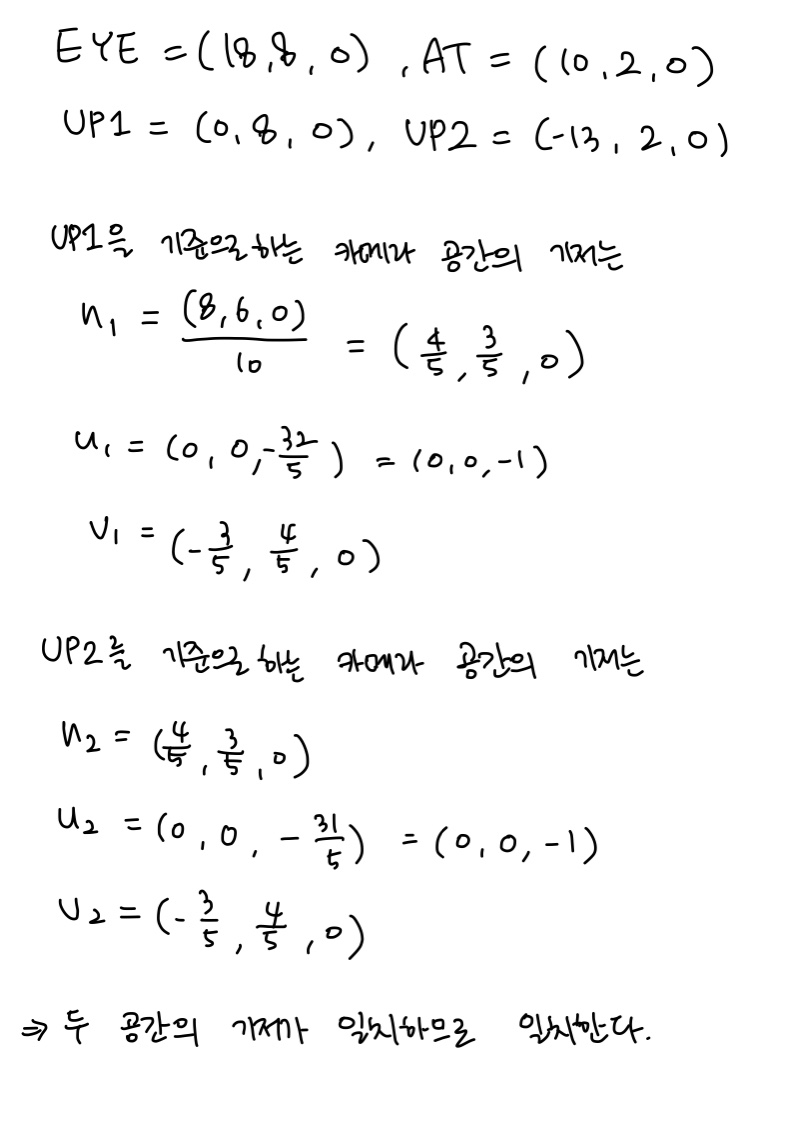 EYE = (18,8,0), AT = (10,2,0)
UP1 = (0,8,0), UP2 = (-13,2,0)
UP1을 기준으로하는 카메라 공간의 기저는
n₁ = (8,6,0)/10 = (4/5, 3/5, 0)
u₁ = (0, 0, -32/5) = (0,0,-1)
v₁ = (-3/5, 4/5, 0)
UP2를 기준으로 하는 카메라 공간의 기저는
n₂ = (4/5, 3/5, 0)
u₂ = (0, 0, -31/5) = (0, 0, -1)
v₂ = (-3/5, 4/5, 0)
⇒ 두 공간의 기저가 일치하므로 일치한다.